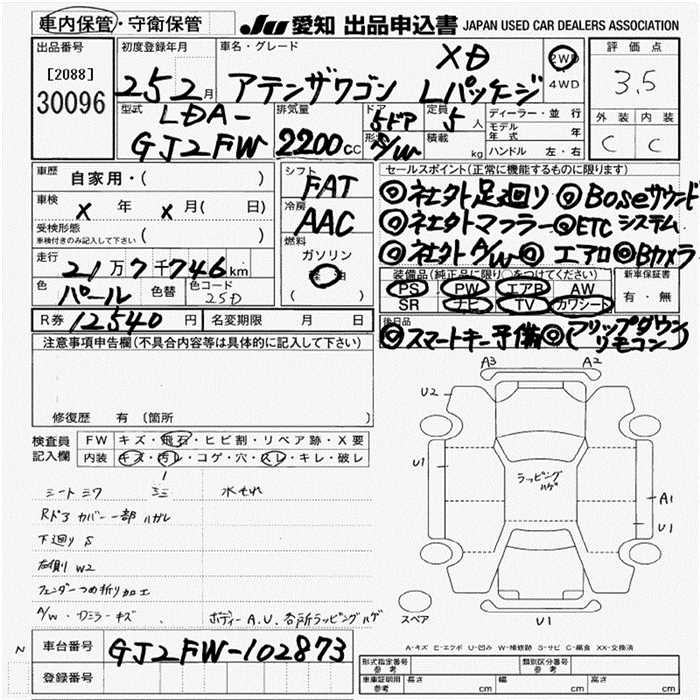 車内保管・守衛保管 JU 愛知 出品申込書 JAPAN USED CAR DEALERS ASSOCIATION
出品番号 [2088] 30096
初度登録年月 25 2月
車名・グレード アテンザワゴン XD Lパッケージ
2WD ・ 4WD
評価点 3.5
外装 内装
C C
型式 LDA-GJ2FW
排気量 2200cc
ドア 5ドア
形状 S/W
定員 5人
積載 kg
ディーラー・並行
モデル年式 年
ハンドル 左・右
車歴 自家用・( )
車検 X 年 X 月( 日)
受検形態
車検付きのみ記入して下さい ( )
走行 21万7千746km
色 パール 色替 色コード 25D
シフト FAT
冷房 AAC
燃料 ガソリン
軽油
( )
セールスポイント(正常に機能するものに限ります)
◎社外足廻り ◎Boseサウンド
◎社外マフラー ◎ETCシステム
◎社外A/W ◎エアロ ◎Bカメラ
装備品(純正品に限り○をつけてください)
PS PW エアB AW
SR ナビ TV カワシート
新車保証書
有・無
R券 12540円 名変期限 月 日
後日品
◎スマートキー予備 ◎(フリップダウンリモコン)
注意事項申告欄(不具合内容等は具体的に記入して下さい)
修復歴 有 (箇所 )
検査員記入欄
FW キズ・飛石・ヒビ割・リペア跡・X要
内装 キズ・汚レ・コゲ・穴・スレ・キレ・破レ
シートシワ シミ 水もれ
Rドアカバー一部ハガレ
下廻りS
右側リW2
フェンダーつめ折り加工
A/W・Dミラーキズ ボディーA.U.各所ラッピングハゲ
A3 A2
U2
U1
ラッピングハゲ
A1
U1
スペア
U1
A-キズ E-エクボ U-凹み W-補修跡 S-サビ C-腐食 XX-交換済
N
車台番号 GJ2FW-102873
登録番号
形式指定番号 参考
類別区分番号 参考
車庫証明用 参考 長さ cm 幅 cm 高さ cm